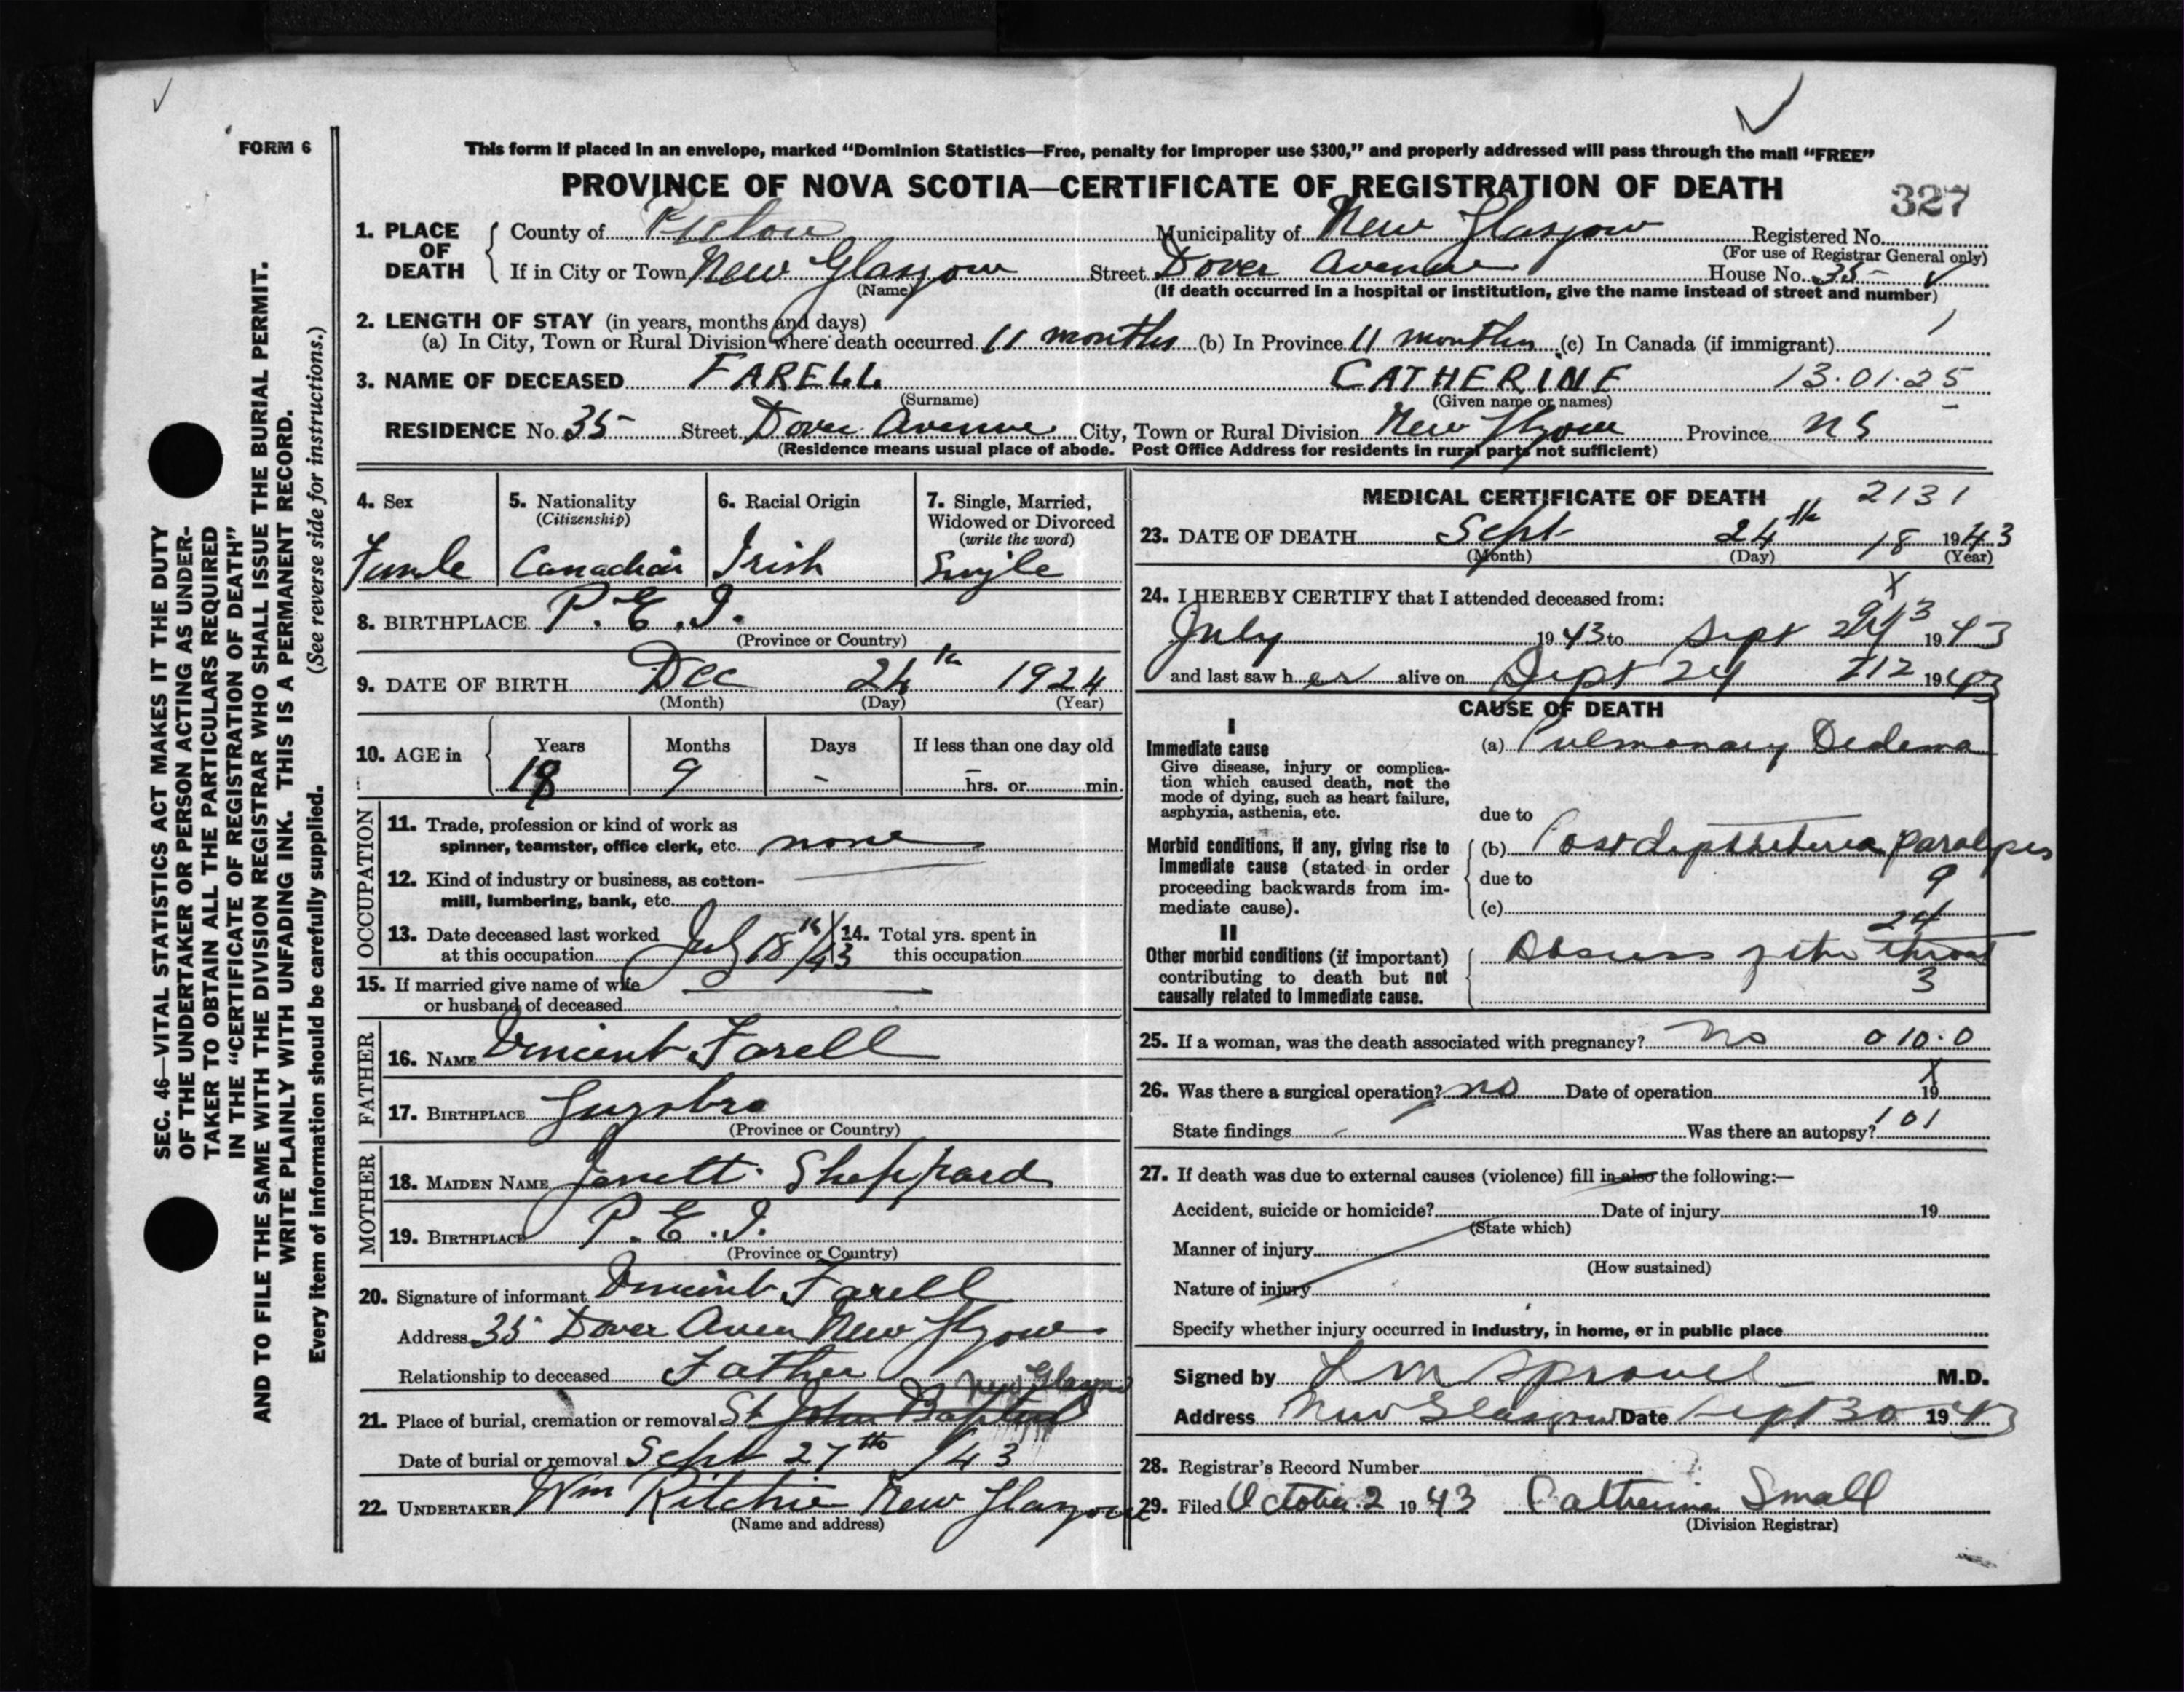 FORM 6
This form if placed in an envelope, marked “Dominion Statistics—Free, penalty for improper use $300,” and properly addressed will pass through the mail “FREE”
PROVINCE OF NOVA SCOTIA—CERTIFICATE OF REGISTRATION OF DEATH
327
1. PLACE OF DEATH
County of Pictou Municipality of New Glasgow Registered No.
(For use of Registrar General only)
If in City or Town New Glasgow Street Dover Avenue House No. 35
(Name) (If death occurred in a hospital or institution, give the name instead of street and number)
2. LENGTH OF STAY (in years, months and days)
(a) In City, Town or Rural Division where death occurred 11 months (b) In Province 11 months (c) In Canada (if immigrant)
3. NAME OF DECEASED FARELL CATHERINE 13.01.25
(Surname) (Given name or names)
RESIDENCE No. 35 Street Dover Avenue City, Town or Rural Division New Glasgow Province N S
(Residence means usual place of abode. Post Office Address for residents in rural parts not sufficient)
4. Sex
Female
5. Nationality
(Citizenship)
Canadian
6. Racial Origin
Irish
7. Single, Married,
Widowed or Divorced
(write the word)
Single
8. BIRTHPLACE P.E.I.
(Province or Country)
9. DATE OF BIRTH Dec 24th 1924
(Month) (Day) (Year)
10. AGE in Years Months Days If less than one day old
18 9 - - hrs. or min.
OCCUPATION
11. Trade, profession or kind of work as
spinner, teamster, office clerk, etc. none
12. Kind of industry or business, as cotton-
mill, lumbering, bank, etc.
13. Date deceased last worked
at this occupation July 18th/43
14. Total yrs. spent in
this occupation
15. If married give name of wife
or husband of deceased
FATHER
16. NAME Vincent Farell
17. BIRTHPLACE
(Province or Country)
MOTHER
18. MAIDEN NAME Janett Sheppard
19. BIRTHPLACE P.E.I.
(Province or Country)
20. Signature of informant Vincent Farell
Address 35 Dover Aven New Glasgow
Relationship to deceased Father
New Glasgow
21. Place of burial, cremation or removal St John Baptist
Date of burial or removal Sept 27th /43
22. UNDERTAKER Wm Ritchie New Glasgow
(Name and address)
MEDICAL CERTIFICATE OF DEATH 2131
23. DATE OF DEATH Sept 24th 18 1943
(Month) (Day) (Year)
24. I HEREBY CERTIFY that I attended deceased from: X
July 1943 to Sept 1943
and last saw her alive on Sept 24 212 1943
CAUSE OF DEATH
I
Immediate cause
Give disease, injury or complica-
tion which caused death, not the
mode of dying, such as heart failure,
asphyxia, asthenia, etc.
(a) Pulmonary Oedema
due to
Morbid conditions, if any, giving rise to
immediate cause (stated in order
proceeding backwards from im-
mediate cause).
(b) Post diphtheria paralysis
due to 9
(c)
24
II
Other morbid conditions (if important)
contributing to death but not
causally related to immediate cause.
Abscess of the throat
3
25. If a woman, was the death associated with pregnancy? No 010.0
X
26. Was there a surgical operation? no Date of operation 19
State findings - Was there an autopsy? 101
27. If death was due to external causes (violence) fill in also the following:—
Accident, suicide or homicide? Date of injury 19
(State which)
Manner of injury
(How sustained)
Nature of injury
Specify whether injury occurred in industry, in home, or in public place
Signed by M.D.
Address New Glasgow Date Sept 30 1943
28. Registrar's Record Number
29. Filed October 2 1943 Catherine Small
(Division Registrar)
SEC. 46—VITAL STATISTICS ACT MAKES IT THE DUTY
OF THE UNDERTAKER OR PERSON ACTING AS UNDER-
TAKER TO OBTAIN ALL THE PARTICULARS REQUIRED
IN THE “CERTIFICATE OF REGISTRATION OF DEATH”
AND TO FILE THE SAME WITH THE DIVISION REGISTRAR WHO SHALL ISSUE THE BURIAL PERMIT.
WRITE PLAINLY WITH UNFADING INK. THIS IS A PERMANENT RECORD.
Every item of information should be carefully supplied. (See reverse side for instructions.)